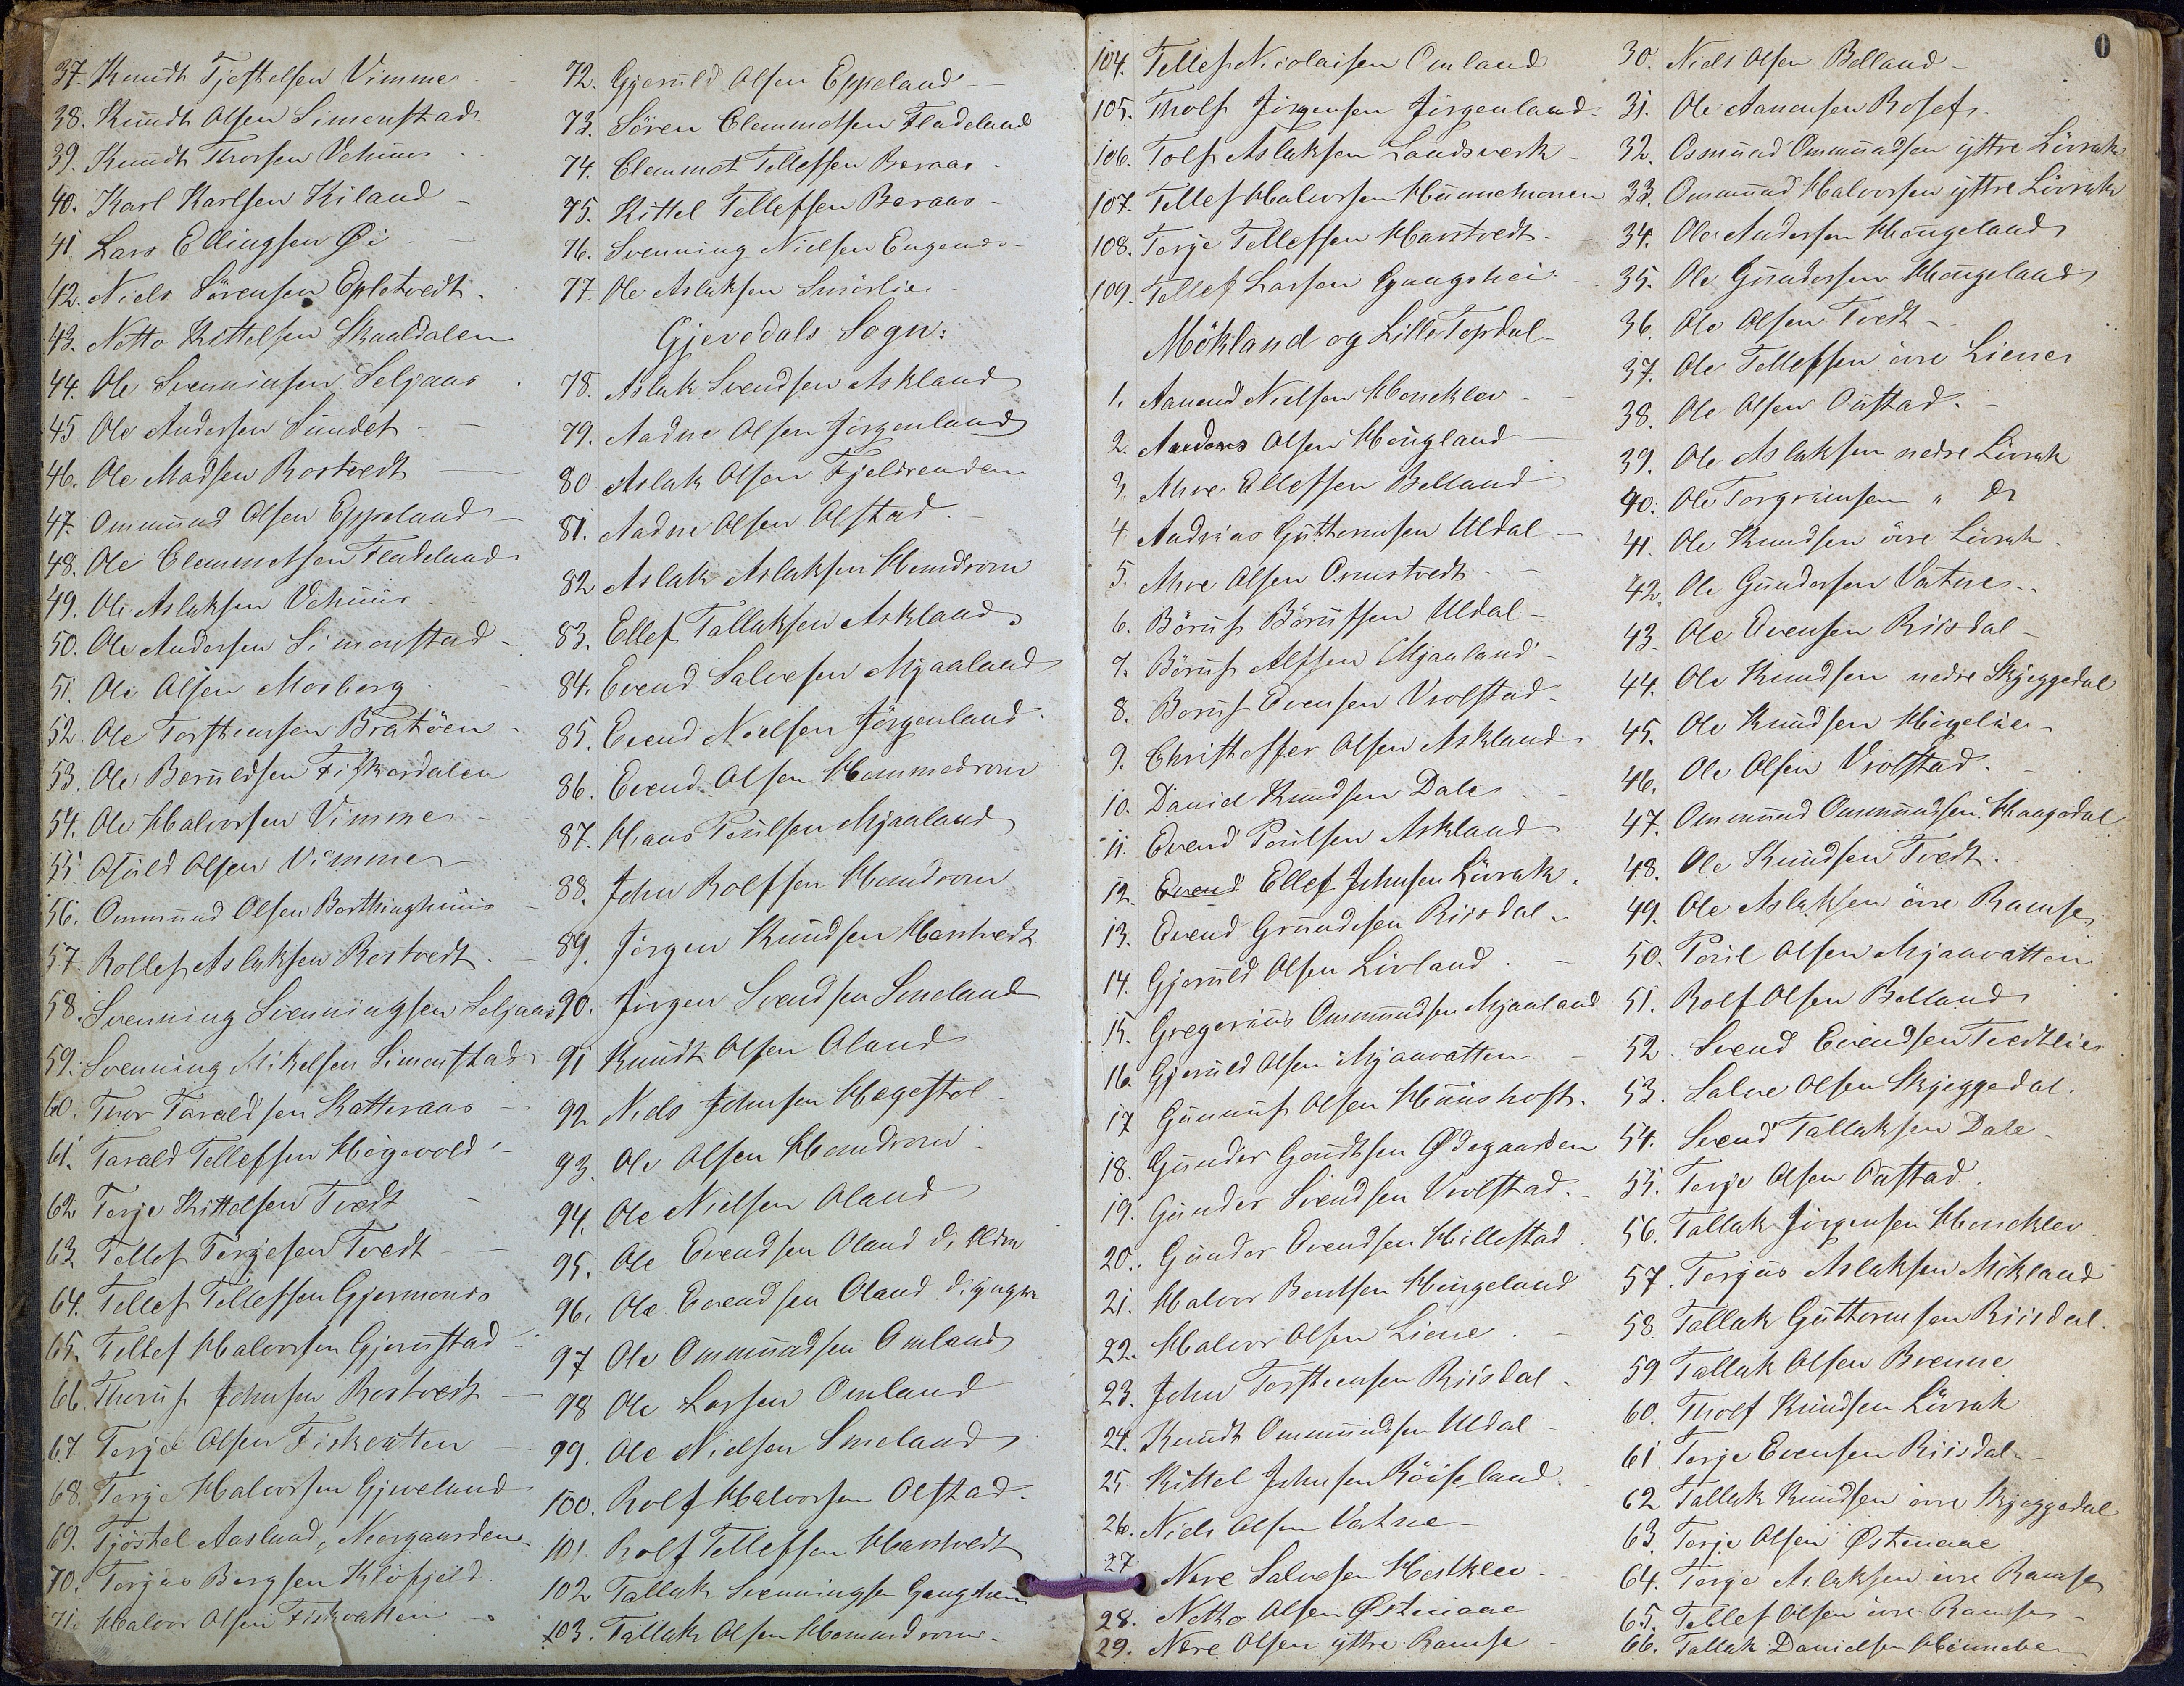 37. Knudt Tjostelsen Vimme
38. Knudt Olsen Simonstad
39. Knudt Thorsen Vehuus
40. Karl Karlsen Kiland
41. Lars Ellingsen Øi
42. Niels Sörensen Epletvedt
43. Notto Kittelsen Skaaldalen
44. Ole Svenninsen Seljaas
45 Ole Andersen Sundet
46. Ole Madsen Rostvedt
47. Ommund Olsen Eppeland
48. Ole Clemmetsen Fladeland
49. Ole Aslaksen Vehuus
50. Ole Andersen Simonstad
51. Ole Olsen Mosberg
52. Ole Torstensen Bratöen
53. Ole Beruldsen Fiskardalen
54. Ole Halvorsen Vimme
55 Olsen Vimme
56. Ommund Olsen
57. Rollef Aslaksen Rostvedt
58. Svenning Svenningsen Seljaas
59. Svenning Mikelsen Simonstad
60. Thor Taraldsen Katteraas
61. Tarald Tellefsen Högevold
62 Terje Kittelsen Tvedt
63. Tellef Terjesen Tvedt
64. Tellef Tellefsen Gjermonds
65. Tellef Halvorsen Gjerustad
66. Thoruf Johnsen Rostvedt
67 Terje Olsen Fiskvatten
68. Terje Halvorsen Gjeveland
69. Tjöstel Aasland, Norgaarden
70. Torjus Bergsen Klöfjeld
71. Halvor Olsen Fiskvatten
72. Gjeruld Olsen Eppeland
73. Sören Clemmetsen Fladeland
74. Clemmet Tellefsen Beraas
75. Kittel Tellefsen Beraas
76. Svenning Nielsen Engenes
77 Ole Aslaksen Smörlie
Gjevedals Sogn:
78. Aslak Svendsen Askland
79. Aadne Olsen Jörgenland
80 Aslak Olsen Fjeldrenden
81. Aadne Olsen Olstad
82 Aslak Aslaksen Hemdrom
83. Ellef Tallaksen Askland
84. Evend Salvesen Mjaaland
85. Evend Nielsen Jörgenland
86. Evend Olsen Hommedrom
87. Hans Poulsen Mjaaland
88. John Rolfsen Homdrom
89. Jörgen Knudsen Harstvedt
90. Jörgen Svendsen Smeland
91 Knudt Olsen Oland
92 Niels Johnsen Hegestöl
93. Ole Olsen Homdrom
94. Ole Nielsen Oland
95. Ole Evendsen Oland d. Eldre
96. Ole Evendsen Oland d. yngre
97 Ole Ommundsen Omland
98 Ole Larsen Omland
99. Ole Nielsen Smeland
100. Rolf Halvorsen Olstad
101. Rolf Tellefsen Harstvedt
102 Tallak Svenningsen Gangshei
103. Tallak Olsen Hommdrom
104. Tellef Nicolaisen Omland
105. Tholf Jörgensen Jörgenland
106. Tolf Aslaksen Landsverk
107. Tellef Halvorsen
108. Terje Tellefsen Harstvedt
109. Tellef Larsen Gangshei
Mökland og Lille Topdal
1. Aanund Nielsen Honeklev
2. Anders Olsen Hougland
3. Ahre Ellefsen Belland
4 Andreas Guttormsen Uldal
5. Ahre Olsen Omstvedt
6. Böruf Börufsen Uldal
7. Böruf Alfsen Mjaaland
8. Boruf Evensen Vrolstad
9. Christoffer Olsen Askland
10. Daniel Knudsen Dale
11. Evend Poulsen Askland
12. Evend Ellef Johnsen Lövrak
13. Evend Grundesen Riisdal
14. Gjeruld Olsen Livland
15. Gregorius Ommundsen Mjaaland
16. Gjeruld Olsen Mjaavatten
17 Gunnuf Olsen Huushoft
18. Gunder Goudtsen Ødegaarden
19. Gunder Svendsen Vrolstad
20. Gunder Evendsen Hillestad
21. Halvor Bentsen Hougeland
22. Halvor Olsen Liene
23. John Torstensen Riisdal
24. Knudt Ommundsen Uldal
25 Kittel Johnsen Röiseland
26. Niels Olsen Vatne
27 Nere Salvesen Hestklev
28. Notto Olsen Østenaae
29. Nere Olsen yttre Ramse
0
30. Niels Olsen Belland
31. Ole Aanensen Rosef
32. Osmund Ommundsen yttre Lövrak
33. Ommund Halvorsen yttre Lövrak
34. Ole Andersen Hougeland
35. Ole Gundersen Hougeland
36. Ole Olsen Tvedt
37. Ole Tellefsen övre Liene
38. Ole Olsen Oustad
39. Ole Aslaksen nedre Lövrak
40. Ole Torgrimsen " Do
41. Ole Knudsen övre Lövrak
42. Ole Gundersen Vatne
43. Ole Evensen Riisdal
44. Ole Knudsen nedre Skjeggedal
45. Ole Knudsen Högelie
46. Ole Olsen Vrolstad
47. Ommund Ommundsen Haugsdal
48. Ole Knudsen Tvedt
49. Ole Aslaksen övre Ramse
50. Poul Olsen Mjaavatten
51. Rolf Olsen Belland
52 Svend Evendsen Tvedtlie
53. Salve Olsen Skjeggedal
54. Svend Tallaksen Dale
55. Terje Olsen Oustad
56. Tallak Jörgensen Honeklev
57. Torjus Aslaksen Mökland
58. Tallak Guttormsen Riisdal
59 Tallak Olsen Brenne
60. Tholf Knudsen Lövrak
61 Terje Evensen Riisdal
62 Tallak Knudsen övre Skjeggedal
63. Terje Olsen Østenaae
64. Terje Aslaksen övre Ramse
65. Tellef Olsen övre Ramse
66. Tallak Danielsen